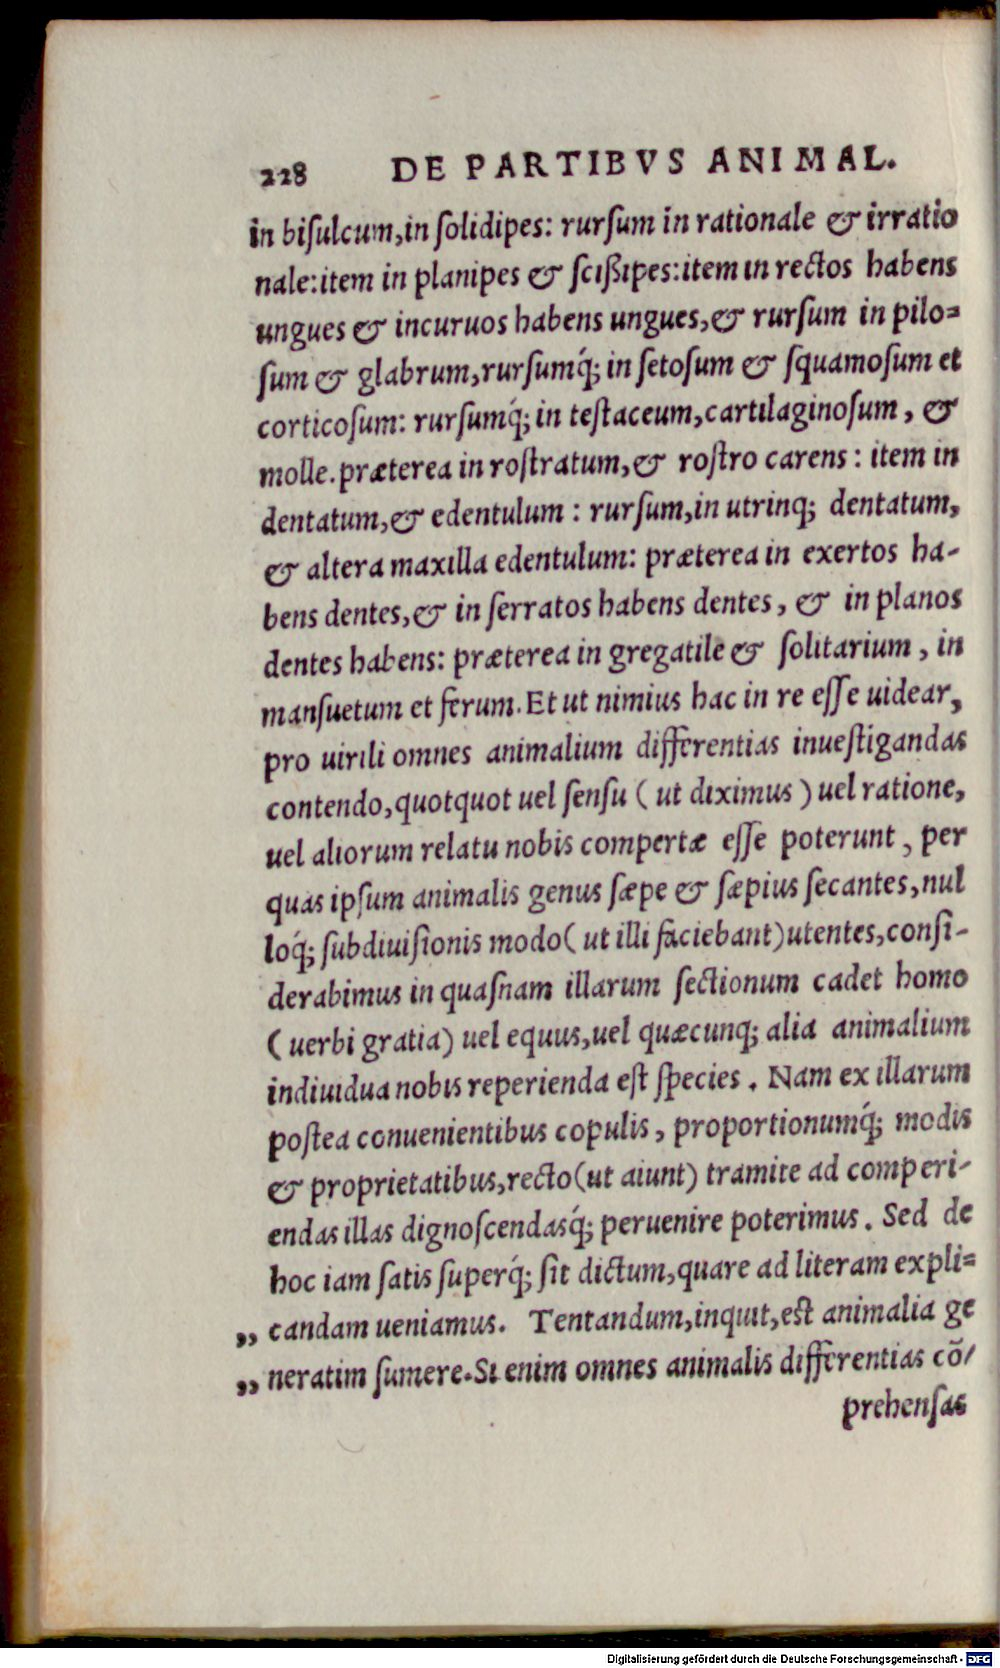 228 DE PARTIBVS ANIMAL.
in biſulcum,in ſolidipes: rurſum in rationale & irratio
nale:item in planipes & ſcißipes:item in rectos habens
ungues & incuruos habens ungues,& rurſum in pilo=
ſum & glabrum,rurſumq́; in ſetoſum & ſquamoſum et
corticoſum: rurſumq́; in teſtaceum,cartilaginoſum, &
molle.præterea in roſtratum,& roſtro carens: item in
dentatum,& edentulum: rurſum,in utrinq; dentatum,
& altera maxilla edentulum: præterea in exertos ha-
bens dentes,& in ſerratos habens dentes, & in planos
dentes habens: præterea in gregatile & ſolitarium, in
manſuetum et ferum.Et ut nimius hac in re eſſe uidear,
pro uirili omnes animalium differentias inueſtigandas
contendo,quotquot uel ſenſu (ut diximus) uel ratione,
uel aliorum relatu nobis compertæ eſſe poterunt, per
quas ipſum animalis genus ſæpe & ſæpius ſecantes,nul
loq́; ſubdiuiſionis modo(ut illi faciebant)utentes,conſi-
derabimus in quaſnam illarum ſectionum cadet homo
(uerbi gratia) uel equus,uel quæcunq; alia animalium
indiuidua nobis reperienda eſt ſpecies. Nam ex illarum
poſtea conuenientibus copulis, proportionumq́; modis
& proprietatibus,recto(ut aiunt) tramite ad comperi-
endas illas dignoſcendasq́; peruenire poterimus. Sed de
hoc iam ſatis ſuperq́; ſit dictum,quare ad literam expli=
„ candam ueniamus. Tentandum,inquit,eſt animalia ge
„ neratim ſumere.Si enim omnes animalis differentias cō-
prehenſas
Digitalisierung gefördert durch die Deutsche Forschungsgemeinschaft - DFG